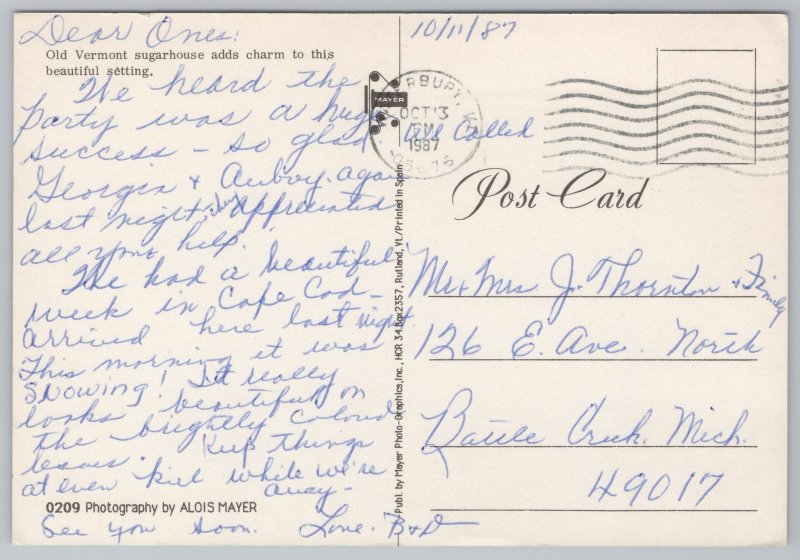 Dear Ones:
Old Vermont sugarhouse adds charm to this
beautiful setting.
We heard the
party was a huge
success - so glad all called
Georgia + Aubry again
last night. Appreciated
all your help.
We had a beautiful
week in Cape Cod -
arrived here last night
This morning it was
snowing! It really
looks beautiful on
the brightly colored
leaves. Keep things
at even keel while we're
away -
0209 Photography by ALOIS MAYER
See you soon. Love. B & D
Publ. by Mayer Photo-Graphics, Inc., HCR 34 Box 2357, Rutland, Vt./Printed in Spain
MAYER
10/11/87
RBURY, VT
OCT 13
PM
1987
05676
Post Card
Mr + Mrs J. Thornton + Family
126 E. Ave. North
Battle Creek. Mich.
49017